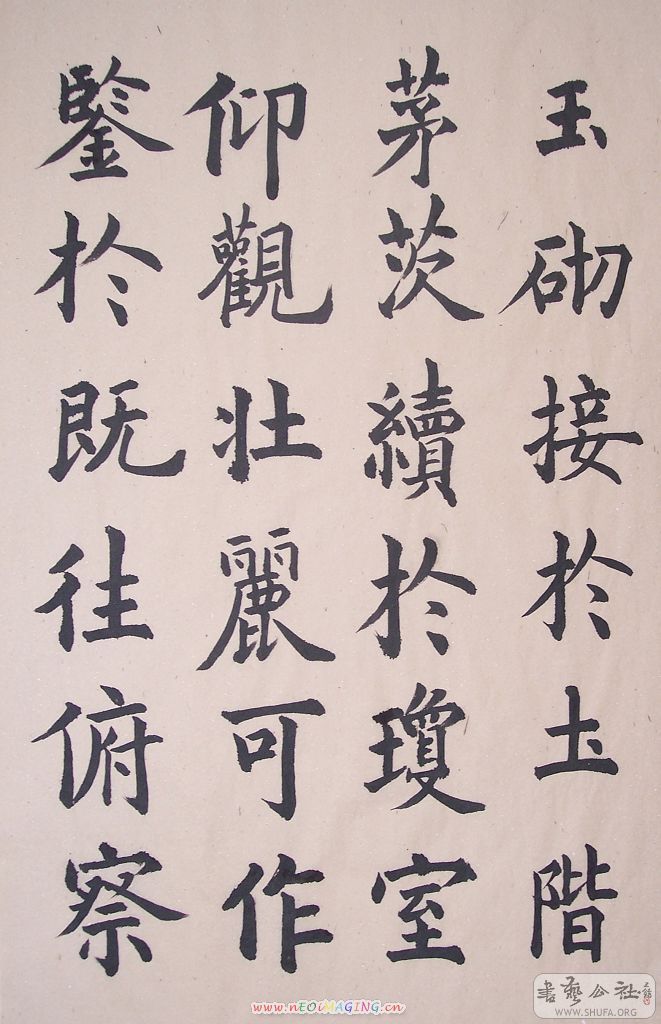 玉砌接於土階
茅茨續於瓊室
仰觀壯麗可作
鑒於既往俯察
www.nEOiMAGING.cn
書藝公社
www.SHUFA.ORG